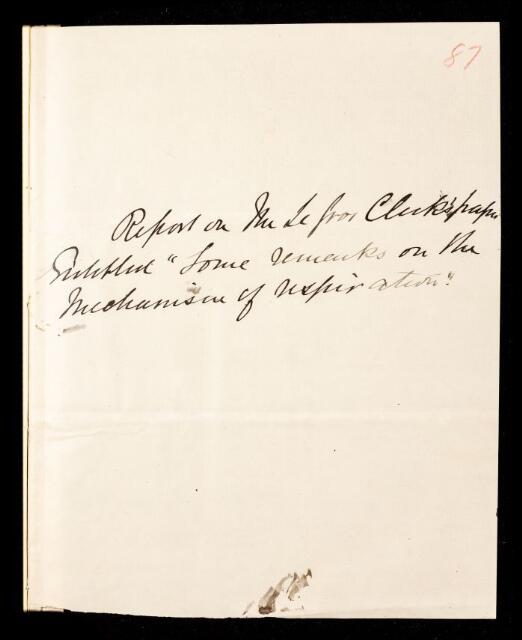 87
Report on Mr Le Gros Clark's paper
Entitled "Some remarks on the
Mechanism of respiration".